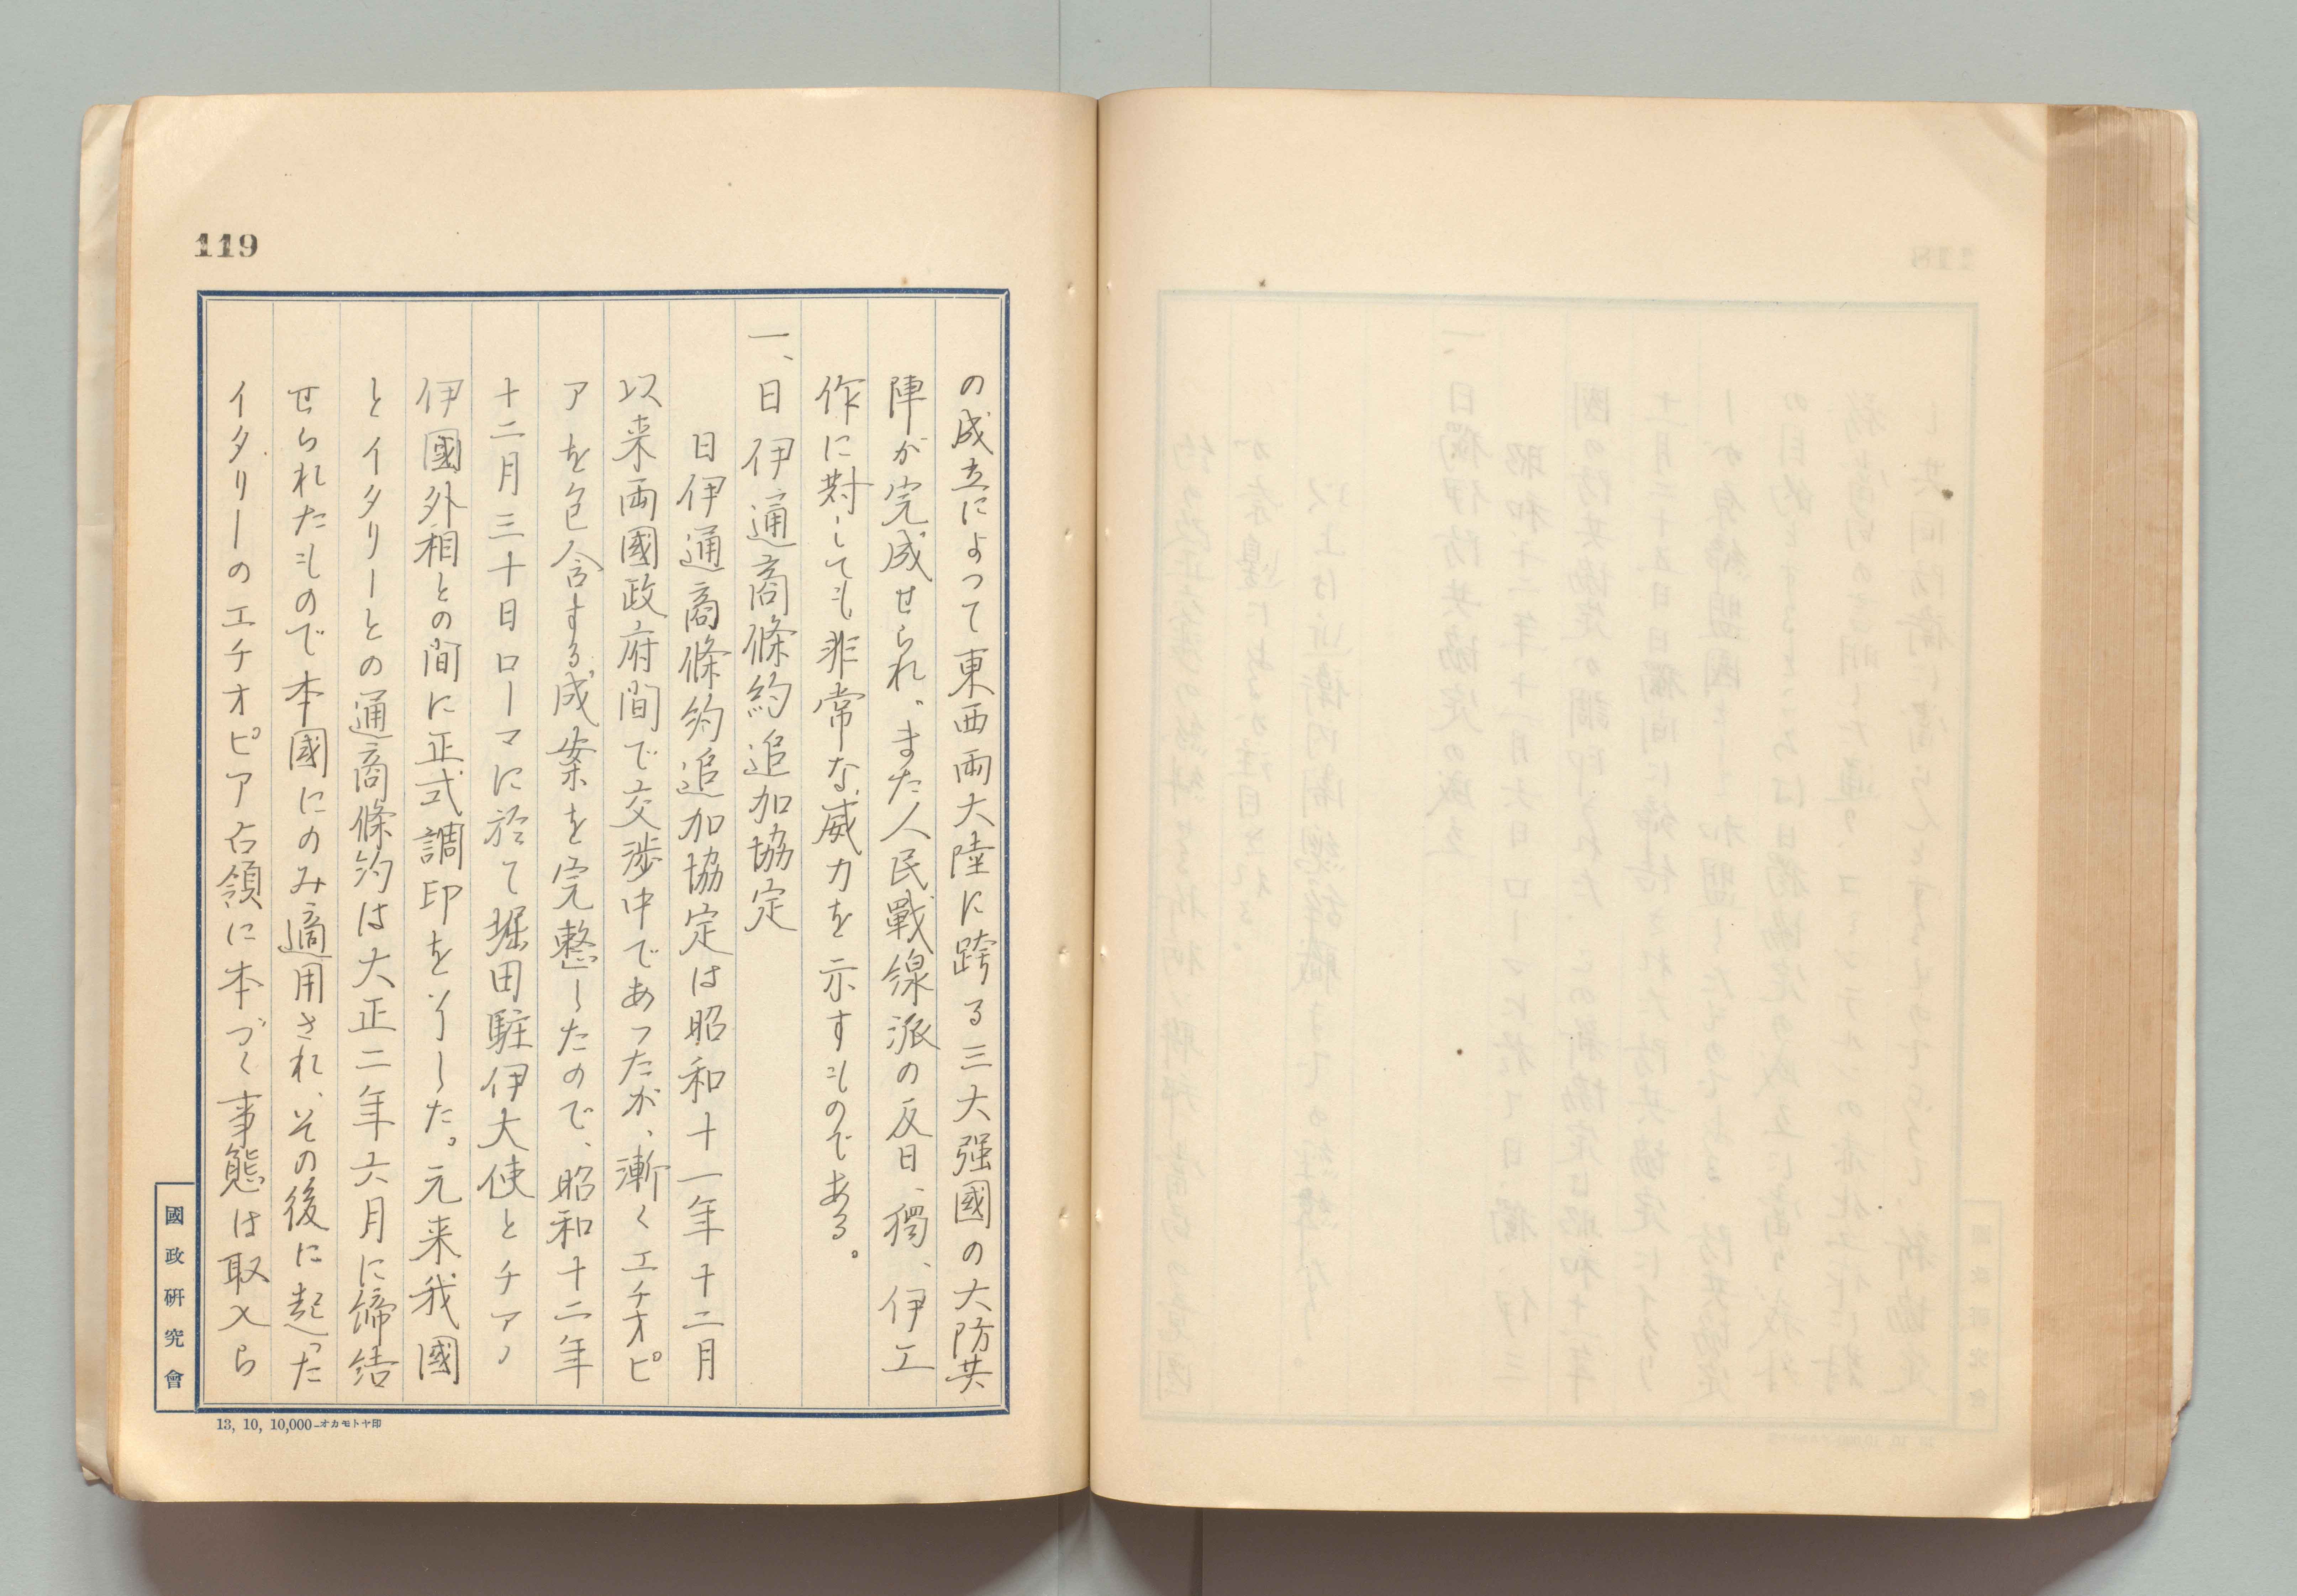 119
の成立によつて東西兩大陸に跨る三大强國の大防共
陣が完成せられ、また人民戰線派の反日、獨、伊工
作に対しても非常な威力を示すものである。
一、日伊通商條約追加協定
日伊通商條約追加協定は昭和十一年十二月
以来両國政府間で交渉中であつたが、漸くエチオピ
アを包含する成案を完整したので、昭和十二年
十二月三十日ローマに於て堀田駐伊大使とチアノ
伊國外相との間に正式調印を行した。元来我國
とイタリーとの通商條約は大正二年六月に締結
せられたもので本國にのみ適用され、その後に起つた
イタリーのエチオピア占領に本づく事態は取入ら
國政硏究會
13, 10, 10,000—オカモトヤ印